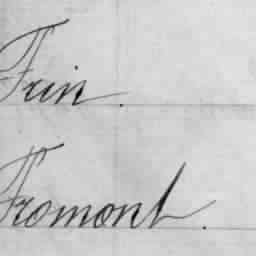 Frin.
Fromont.